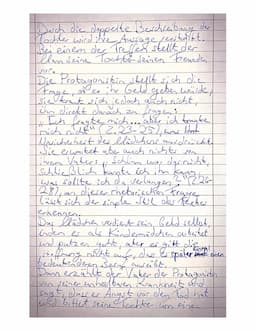 Durch die doppelte Beschreibung der
Tochter wird ihre Aussage verstärkt.
Bei einem der Treffen stellt der
Mann seine Tochter seinen Freunden
vor.
Die Protagonistin stellt sich die
Frage, ob er ihr Geld geben würde,
sie traut sich jedoch nicht,
ihn direkt danach zu fragen:
"Ich fragte mich... aber ich traute
mich nicht" (Z.23-25), was
Unsicherheit des Mädchens ausdrückt.
Sie erwartet aber auch nichts von
ihrem Vater: schlimm war dgr nicht,
schließlich kannte ich ihn kaum,
was sollte ich da verlangen? (Z.26-
28), an dieser rhetorischen Frage
lässt sich der Stil des Textes
erkennen.
Das Mädchen verdient sein Geld selbst,
indem es als Kindermädchen arbeitet
und putzen geht, aber es gibt die
Hoffnung nicht auf, das es später einmal einen
bedeutenderen Beruf ausübt.
Dann erzählt der Vater der Protagonistin
von seiner unheilbaren Krankheit und
sagt, dass er Angst vor dem Tod hat
und bittet seine Tochter um eine